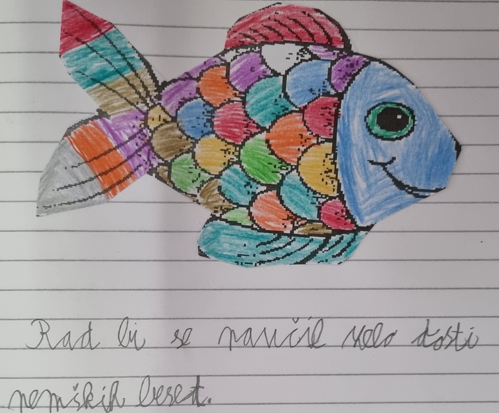 Rad bi se naučil zelo dosti
nemških beset.